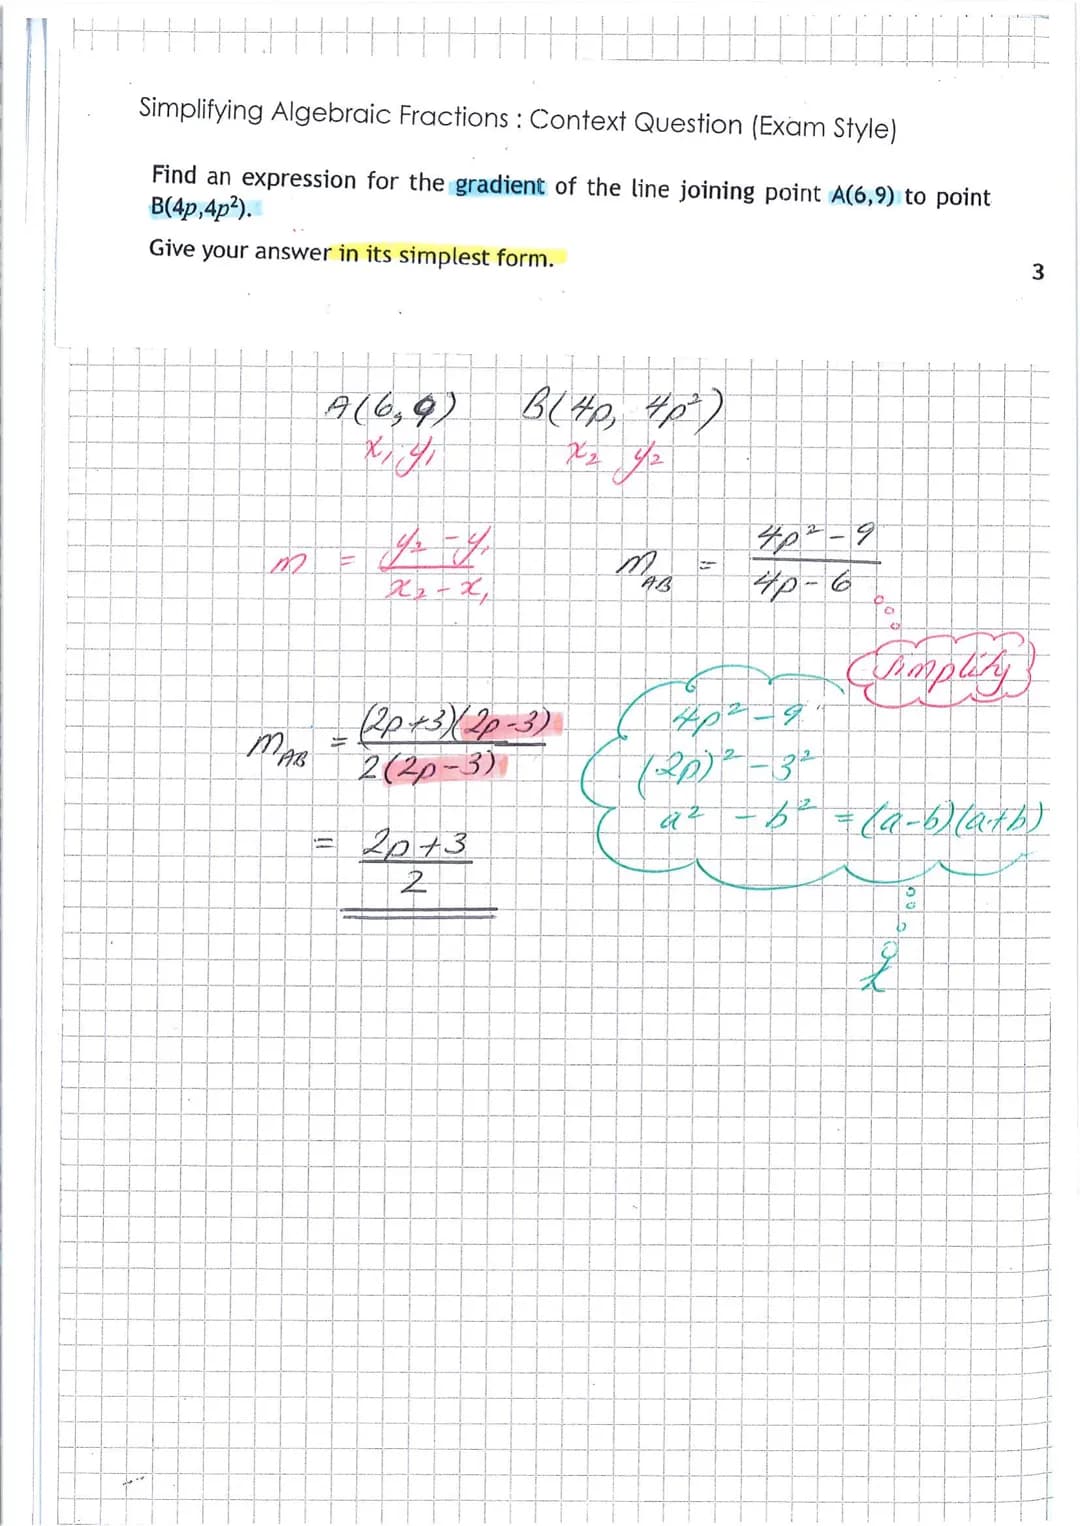 Simplifying Algebraic Fractions : Context Question (Exam Style)
Find an expression for the gradient of the line joining point A(6,9) to point
B(4p,4p²).
Give your answer in its simplest form.
3
A(6,9) B(4p, 4p²)
x₁ y₁ x₂ y₂
m = (y₂ - y₁)/(x₂ - x₁) m_AB = (4p² - 9)/(4p - 6)
Simplify
m_AB = (2p+3)(2p-3)/2(2p-3)
4p² - 9
(2p)² - 3²
a² - b² = (a-b)(a+b)
= (2p+3)/2